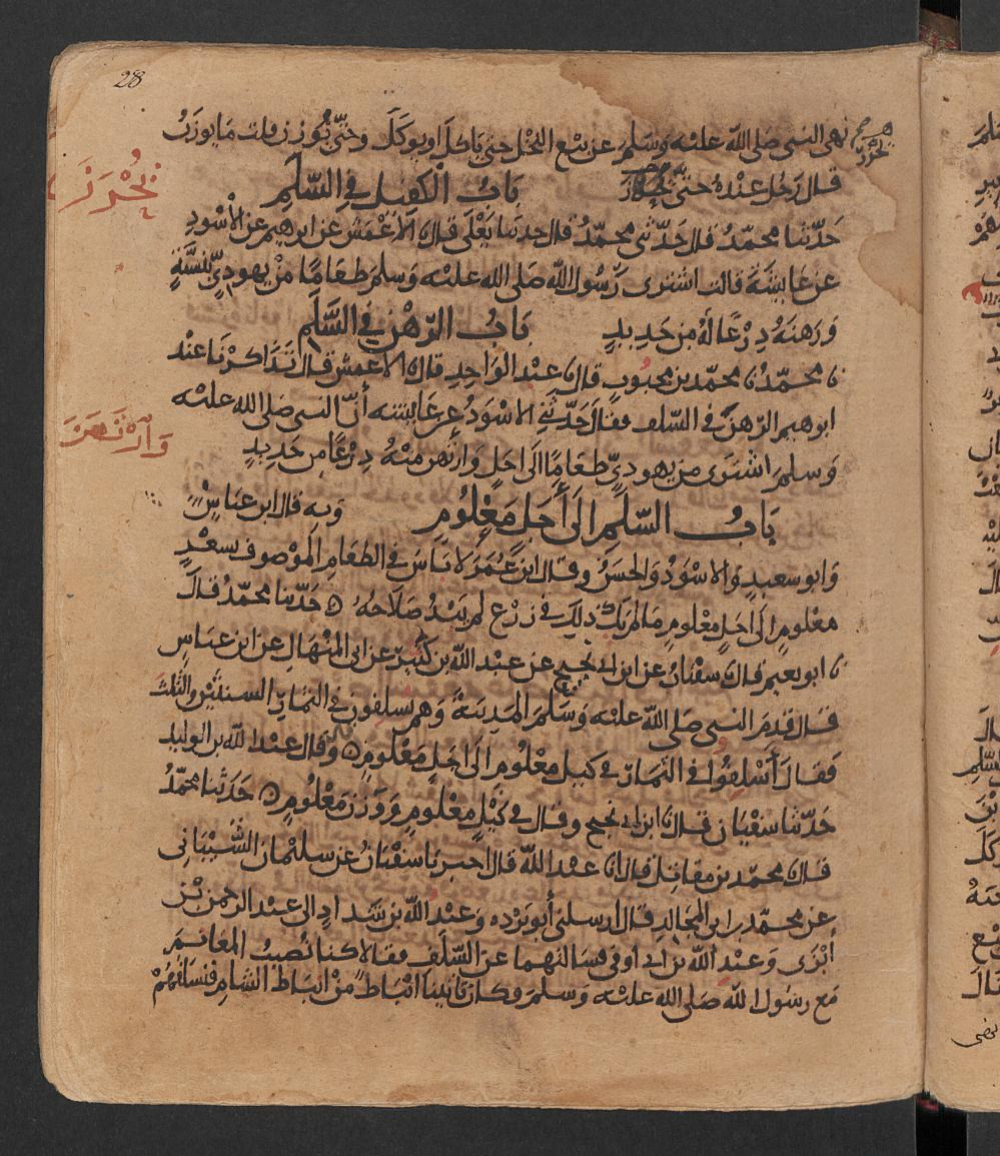 28
نهى النبى صلى الله عليه وسلم عن بيع النخل حتى ياكل او يوكل وحتى يوزن قلت ما يوزن
قال رجل عنده حتى
باب الكفيل في السلم
حدثنا محمد قال حدثني محمد قال حدثنا يعلى قال الاعمش عن ابرهيم عن الاسود
عن عايشة قالت اشترى رسول الله صلى الله عليه وسلم طعاما من يهودي بنسية
ورهنه درعا له من حديد باب الرهن في السلم
محمد محمد بن محبوب قال عبد الواحد قال الاعمش قال تذاكرنا عند
ابرهيم الرهن في السلف فقال حدثني الاسود عن عايشة أن النبى صلى الله عليه
وارتهن
وسلم اشترى من يهودي طعاما الى اجل وارتهن منه درعا من حديد
باب السلم الى أجل معلوم وبه قال ابن عباس
وابو سعيد والاسود والحسن وقال ابن عمر لا باس في الطعام الموصوف بسعر
معلوم الى اجل معلوم ما لم يك ذلك في زرع لم يبد صلاحه حدثنا محمد قال
ابو نعيم قال سفيان عن ابن ابي نجيح عن عبد الله بن كثير عن ابى المنهال عن ابن عباس
قال قدم النبى صلى الله عليه وسلم المدينة وهم يسلفون في الثمار السنتين والثلث
فقال أسلفوا في الثمار في كيل معلوم الى اجل معلوم وقال عبد الله بن الوليد
حدثنا سفيان قال ابن ابي نجيح وقال في كيل معلوم ووزن معلوم حدثنا محمد
قال محمد بن مقاتل قال انا عبد الله قال اخبرنا سفيان عن سليمان الشيباني
عن محمد بن ابى المجالد قال ارسلني أبو برده وعبد الله بن شداد الى عبد الرحمن بن
أبزى وعبد الله بن ابي اوفى فسالتهما عن السلف فقالا كنا نصيب المغانم
مع رسول الله صلى الله عليه وسلم وكان ياتينا انباط من انباط الشام فنسلفهم